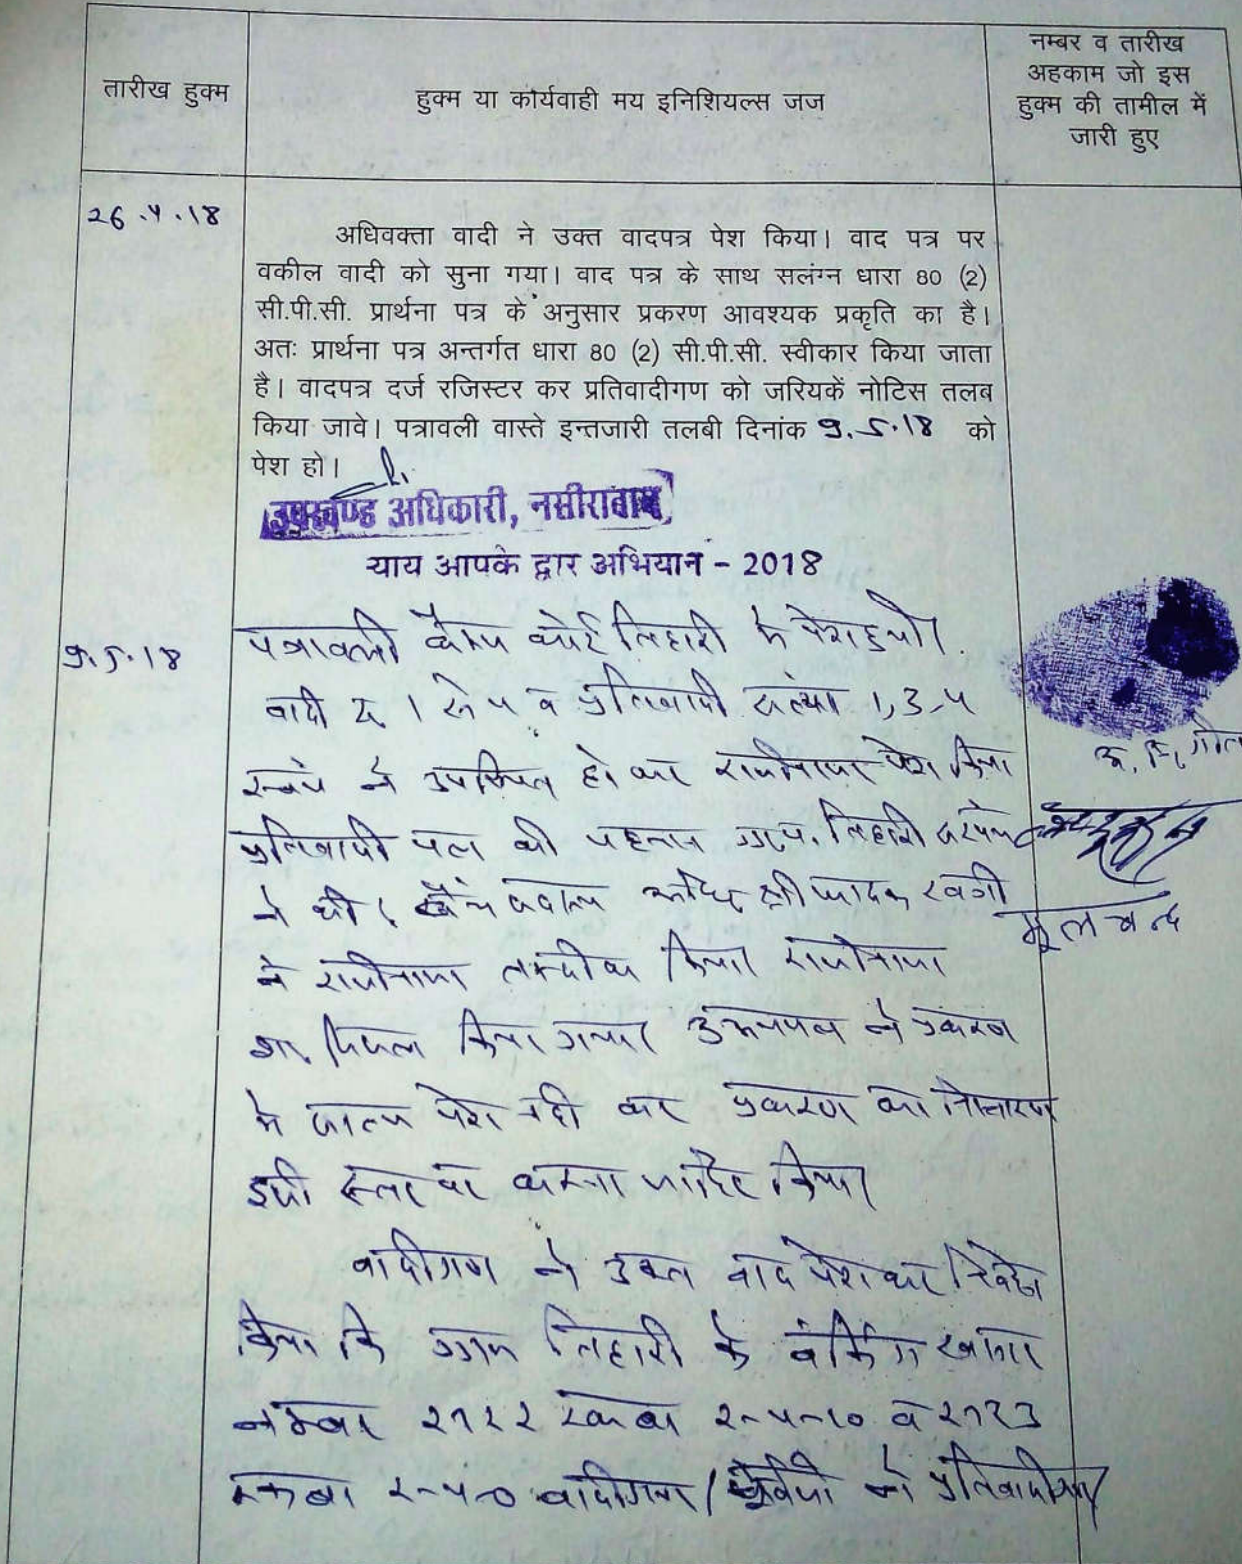 तारीख हुक्म
हुक्म या कार्यवाही मय इनिशियल्स जज
नम्बर व तारीख
अहकाम जो इस
हुक्म की तामील में
जारी हुए
26.4.18
अधिवक्ता वादी ने उक्त वादपत्र पेश किया। वाद पत्र पर
वकील वादी को सुना गया। वाद पत्र के साथ सलंग्न धारा 80 (2)
सी.पी.सी. प्रार्थना पत्र के अनुसार प्रकरण आवश्यक प्रकृति का है।
अतः प्रार्थना पत्र अन्तर्गत धारा 80 (2) सी.पी.सी. स्वीकार किया जाता
है। वादपत्र दर्ज रजिस्टर कर प्रतिवादीगण को जरियकें नोटिस तलब
किया जावे। पत्रावली वास्ते इन्तजारी तलबी दिनांक 9.5.18 को
पेश हो।
उपखण्ड अधिकारी, नसीराबाद
याय आपके द्वार अभियान - 2018
9.5.18
पत्रावली कैम्प कोर्ट तिहारी में पेश हुयी।
वादी सं 1 से 4 व प्रतिवादी संख्या 1,3,4
ने उपस्थित हो कर राजीनामा पेश किया
प्रतिवादी की पहचान ग्राप. तिहारी सरपंच
ने की।
ने राजीनामा तस्दीक किया। राजीनामा
शामिल किया गया। उभयपक्ष ने प्रकरण
में साक्ष्य पेश नही कर प्रकरण का निस्तारण
इसी स्तर पर करना जाहिर किया।
मूलचन्द
वादीगण ने उक्त वाद पेश कर निवेदन
किया कि ग्राम तिहारी के वंकिंग खसरा
नम्बर २१२२ रकबा २-४-१० व २१२३
रकबा २-४-० वादीगण / ने प्रतिवादीगण